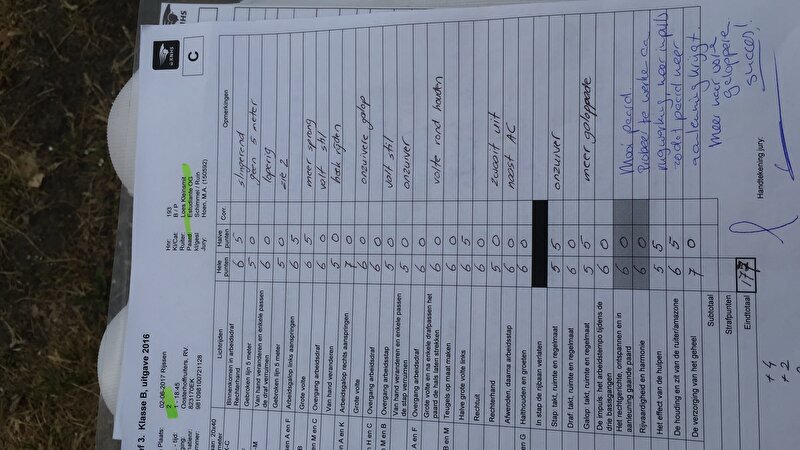 KNHS
C
ef 3. Klasse B, uitgave 2016
Plaats: 02-06-2017 Rijssen
- tijd 2 - 18.45
Oosterhofruiters, RV.
823170EK
981098100721128
Hnr: 193
Kl/Cat: B / P
Ruiter: Loes
Paard: Estudiante OG
kl/gesl: Schimmel / Ruin
Jury: Hoen, M.A. (150592)
Lichtrijden
Hele punten
Halve punten
Corr.
Opmerkingen
Binnenkomen in arbeidsdraf
Rechterhand 6 5 slingerend
Gebroken lijn 5 meter 5 0 geen 5 meter
Van hand veranderen en enkele passen de draf verruimen 6 0
Gebroken lijn 5 meter 5 0 zie 2
Arbeidsgalop links aanspringen 6 5
Grote volte 6 5 meer sprong
Overgang arbeidsdraf 6 0 valt stil
Van hand veranderen 6 0 hoek rijden
Arbeidsgalop rechts aanspringen 7 0
Grote volte 6 0 onzuivere galop
Overgang arbeidsdraf 6 0
Overgang arbeidsstap 5 0 valt stil
Van hand veranderen en enkele passen de stap verruimen 5 0 onzuiver
Overgang arbeidsdraf 6 0
Grote volte en na enkele drafpassen het paard de hals laten strekken 6 0 volte rond houden
Teugels op maat maken 6 0
Halve grote volte links 6 5
Rechtuit 6 0
Rechterhand 5 0 zwaait uit
Afwenden, daarna arbeidsstap 6 0 naast AC
Halthouden en groeten 6 0
In stap de rijbaan verlaten
Stap: takt, ruimte en regelmaat 5 5 onzuiver
Draf: takt, ruimte en regelmaat 6 0
Galop: takt, ruimte en regelmaat 5 5 meer galoppade
De impuls: het arbeidstempo tijdens de drie basisgangen 6 0
Het rechtgerichte, ontspannen en in aanleuning gaande paard 6 0
Rijvaardigheid en harmonie 6 0
Het effect van de hulpen 5 5
De houding en zit van de ruiter/amazone 6 5
De verzorging van het geheel 7 0
Subtotaal
Strafpunten
Eindtotaal 177
Mooi paard
Probeer te werken aan
nageving, meer impuls
zodat paard meer
aanleuning krijgt.
Meer naar voren
galopperen
succes!
Handtekening jury:
+4
+2